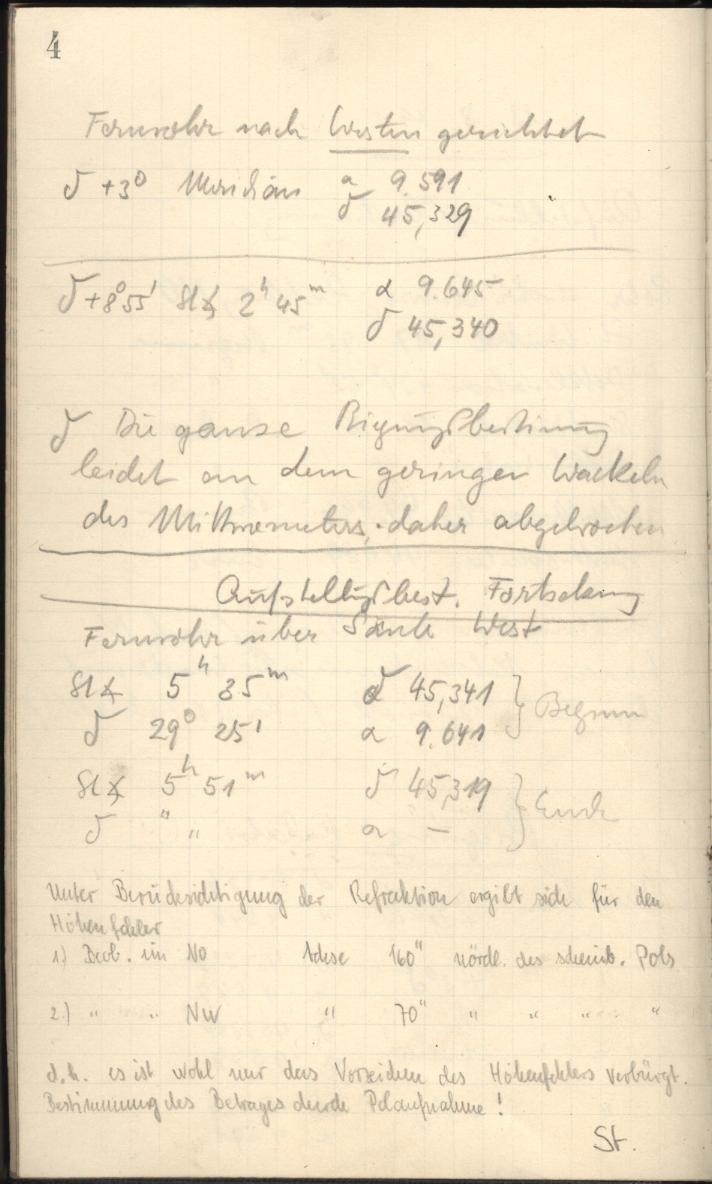 4
Fernrohr nach Westen gerichtet
δ +3° Meridian α 9.591
δ 45,329
δ +8° 55' St∡ 2h 45m α 9.645
δ 45,340
δ Die ganze Biegungsbestimmg
leidet an dem geringen Wackeln
des Mikrometers, daher abgebrochen
Aufstellgsbest. Fortsetzung
Fernrohr über Säule West
St∡ 5h 35m δ 45,341 } Beginn
δ 29° 25' α 9.641
St∡ 5h 51m δ 45,319 } Ende
δ " " α —
Unter Berücksichtigung der Refraktion ergibt sich für den
Höhenfehler
1) Beob. im NO Achse 160" nördl. des scheinb. Pols
2.) " " NW " 70" " " " "
d.h. es ist wohl nur das Vorzeichen des Höhenfehlers verbürgt.
Bestimmung des Betrages durch Polaufnahme!
St.